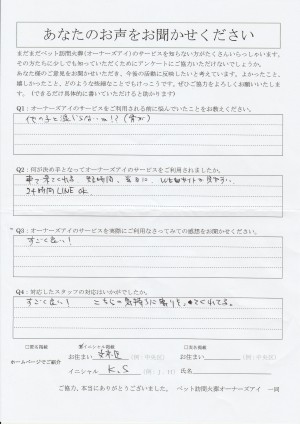 あなたのお声をお聞かせください
まだまだペット訪問火葬(オーナーズアイ)のサービスを知らない方がたくさんいらっしゃいます。
その方たちに少しでも知っていただくためにアンケートにご協力いただけないでしょうか。
あなた様のご意見をお聞かせいただき、今後の活動に反映したいと考えています。よかったこと、
嬉しかったこと、どのような些細なことでもけっこうです。ぜひ協力をよろしくお願いいたしま
す。（できるだけ具体的に書いていただけると助かります）
Q1：オーナーズアイのサービスをご利用される前に悩んでいたことをお教えください。
他の子と混ざらないか!?
Q2：何が決め手となってオーナーズアイのサービスをご利用されましたか。
車で来てくれる 営業時間、 WEBサイトが見やすい。
24時間LINE OK.
Q3：オーナーズアイのサービスを実際にご利用なさってみての感想をお聞かせください。
すごく良い！
Q4：対応したスタッフの対応はいかがでしたか。
すごく良い！ こちらの気持ちに寄りそってくれてる。
□匿名掲載
イニシャル掲載
□実名掲載
ホームページでご紹介
お住まい
（例：中央区）
お住まい
（例：中央区）
イニシャル K.S （例：J．H）
氏名
ご協力、本当にありがとうございました。 ペット訪問火葬オーナーズアイ 一同